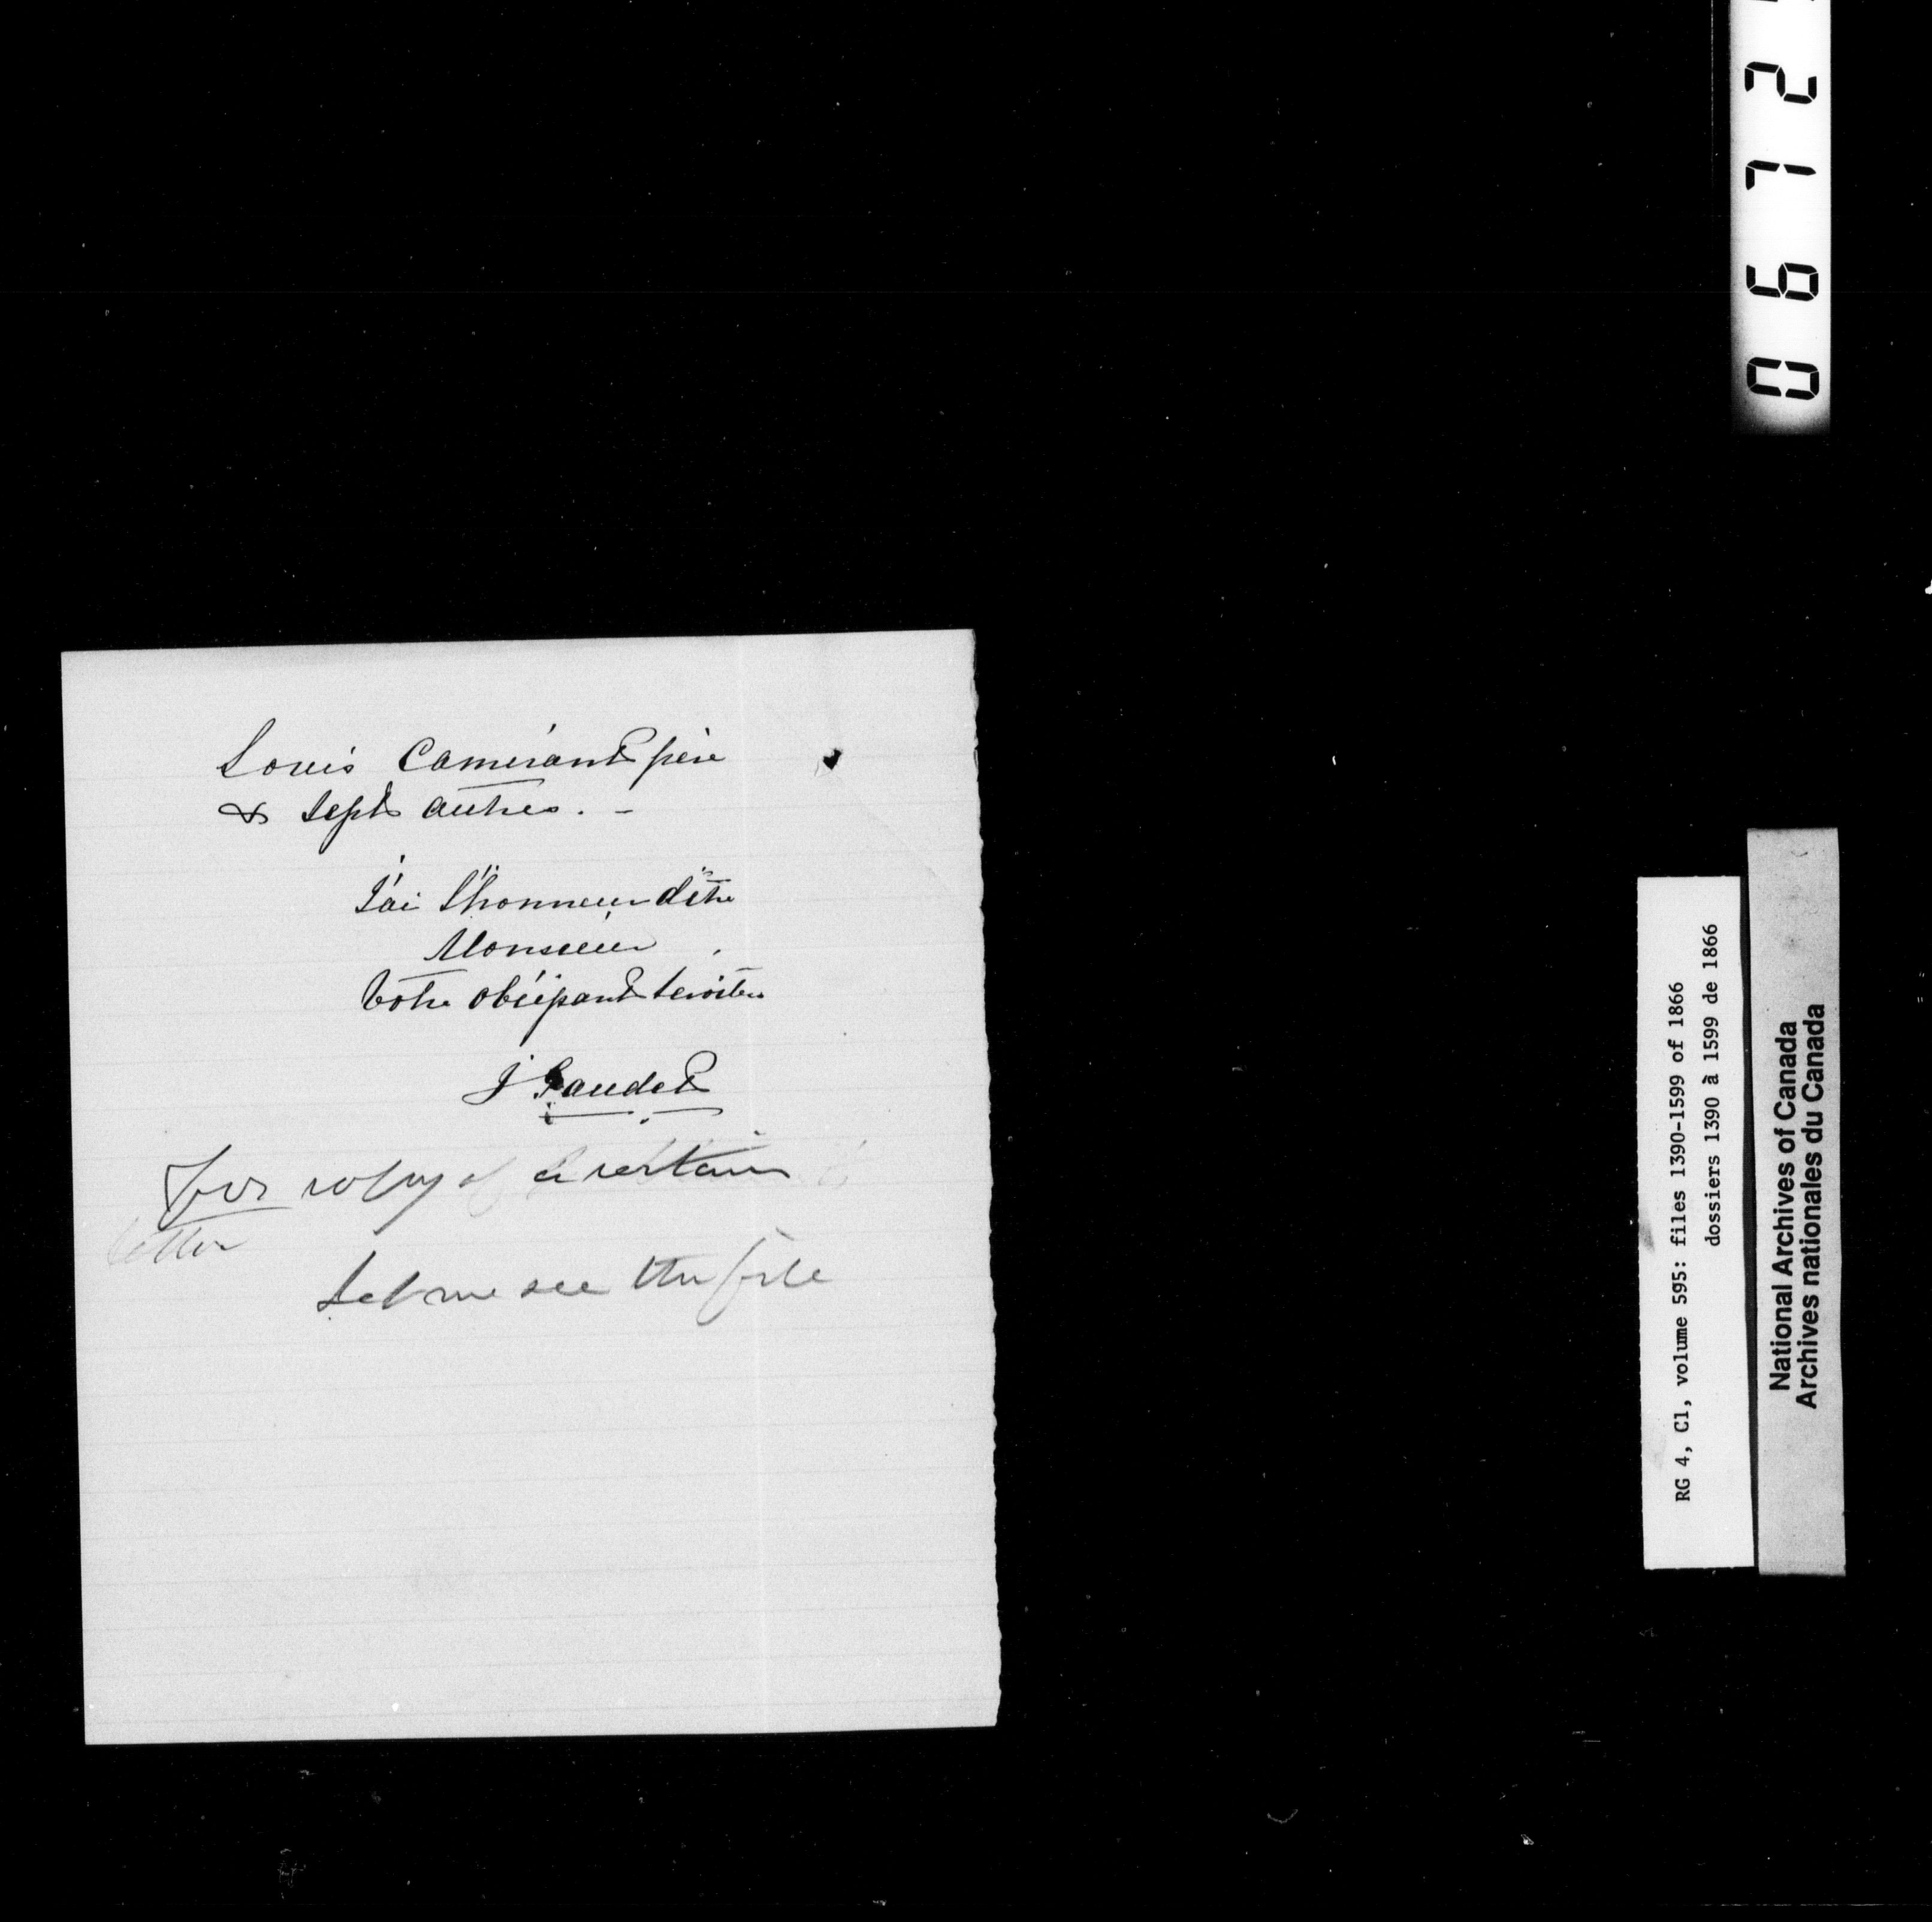 Louis Camirant père
& sept autres. -
J'ai l'honneur d'être
Monsieur
Votre obéissant serviteur
J Gaudet
for copy of a certain
letter
Let me see the file
0 6 7 2
RG 4, C1, volume 595: files 1390-1599 of 1866
dossiers 1390 à 1599 de 1866
National Archives of Canada
Archives nationales du Canada